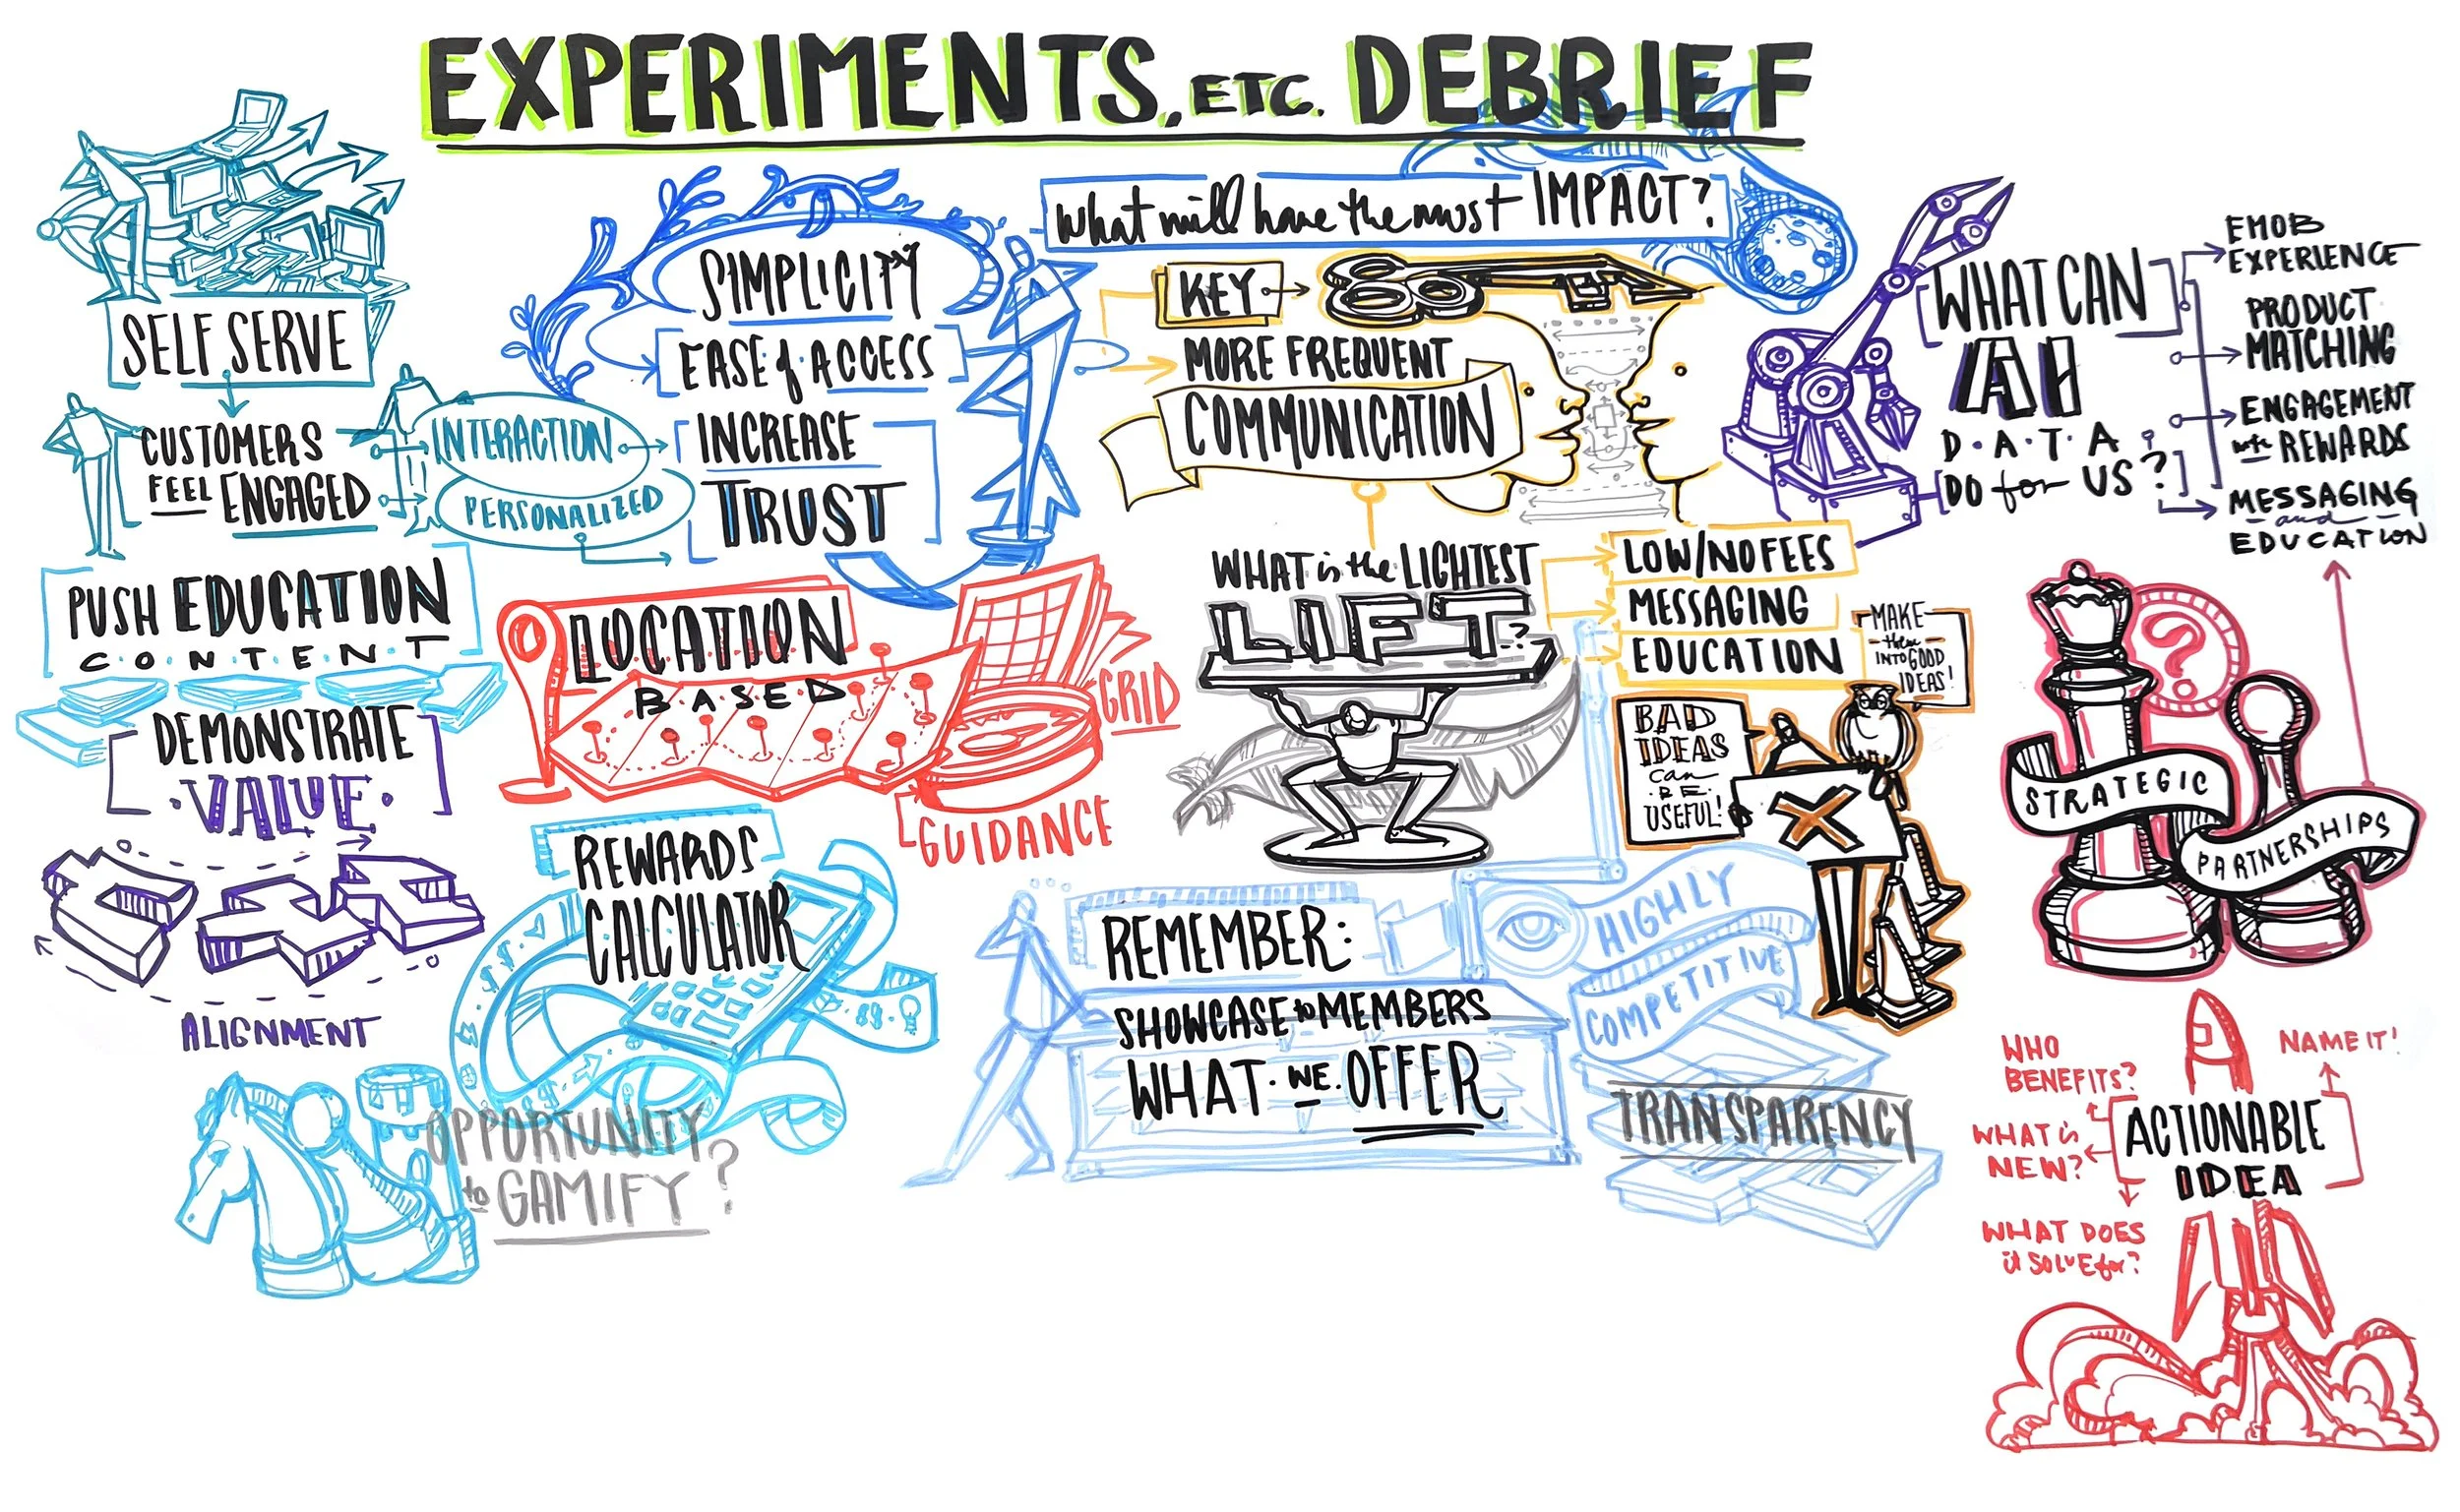 EXPERIMENTS, ETC. DEBRIEF
SELF SERVE
CUSTOMERS
FEEL ENGAGED
INTERACTION
PERSONALIZED
SIMPLICITY
EASE of ACCESS
INCREASE
TRUST
What will have the most IMPACT?
KEY
MORE FREQUENT
COMMUNICATION
WHAT CAN
AI
D.A.T.A
DO for US?
EMOB
EXPERIENCE
PRODUCT
MATCHING
ENGAGEMENT
with REWARDS
MESSAGING
and
EDUCATION
PUSH EDUCATION
C.O.N.T.E.N.T
DEMONSTRATE
.VALUE.
ALIGNMENT
LOCATION
B.A.S.E.D
GRID
GUIDANCE
WHAT is the LIGHTEST
LIFT?
LOW/NO FEES
MESSAGING
EDUCATION
BAD
IDEAS
can
.BE.
USEFUL!
MAKE
them
INTO GOOD
IDEAS!
STRATEGIC
PARTNERSHIPS
REWARDS
CALCULATOR
OPPORTUNITY
to GAMIFY?
REMEMBER:
SHOWCASE to MEMBERS
WHAT.WE.OFFER
HIGHLY
COMPETITIVE
TRANSPARENCY
WHO
BENEFITS?
NAME IT!
WHAT is
NEW?
ACTIONABLE
IDEA
WHAT DOES
it SOLVE for?